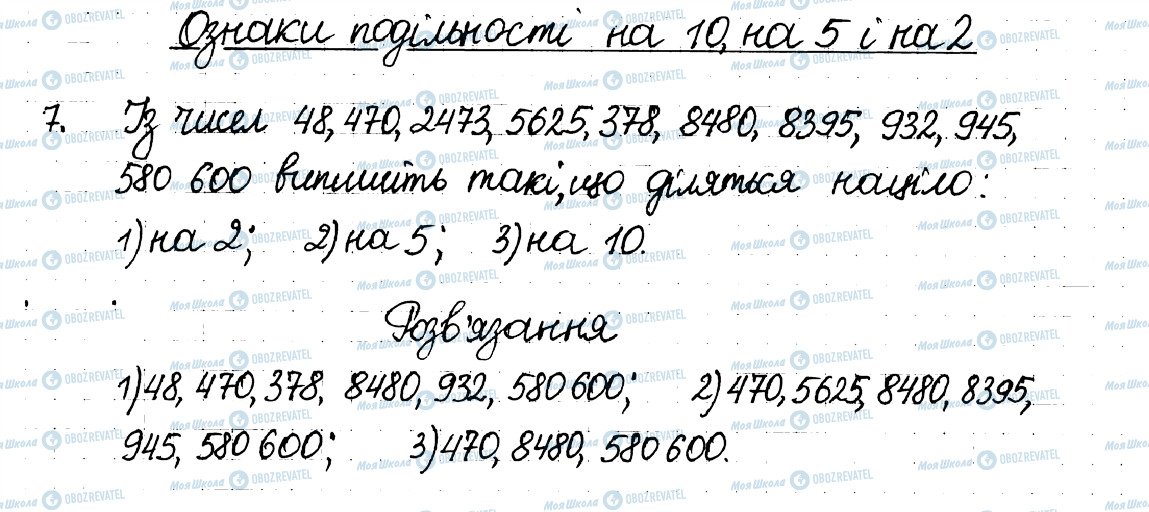 Ознаки подільності на 10, на 5 і на 2
7. Із чисел 48, 470, 2473, 5625, 378, 8480, 8395, 932, 945,
580 600 випишіть такі, що діляться націло:
1) на 2; 2) на 5; 3) на 10.
Розв'язання
1) 48, 470, 378, 8480, 932, 580 600; 2) 470, 5625, 8480, 8395,
945, 580 600; 3) 470, 8480, 580 600.
Моя Школа OBOZREVATEL